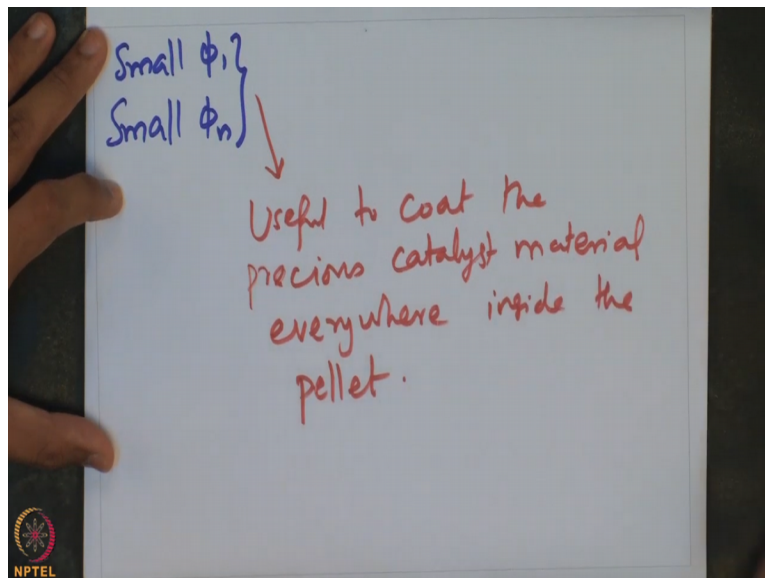 Small ϕ₁}
Small ϕn}
Useful to coat the
precious catalyst material
everywhere inside the
pellet.
NPTEL